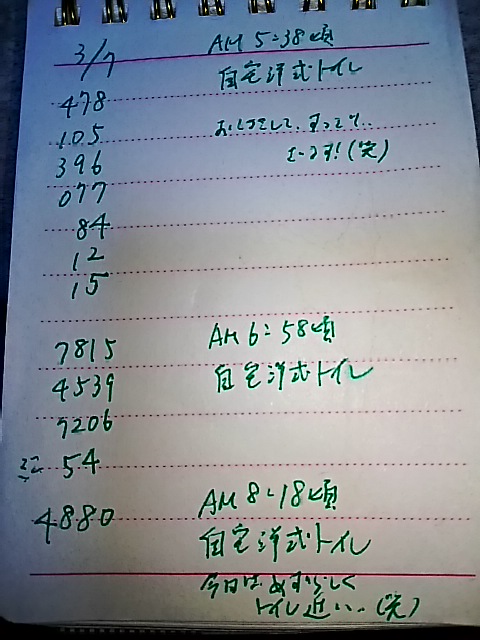 3/7 AM 5:38頃
478 自宅洋式トイレ
105
396 す!(笑)
077
84
12
15
7815 AM 6:58頃
4539 自宅洋式トイレ
7206
ミニ 54
4880 AM 8:18頃
自宅洋式トイレ
今日はめずらしく
トイレ近い..(笑)